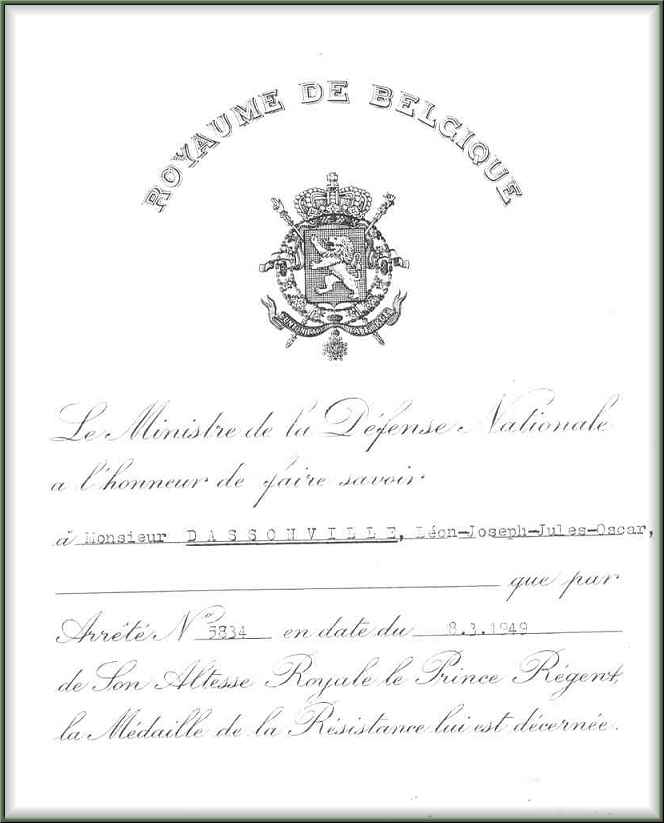 ROYAUME DE BELGIQUE
Le Ministre de la Défense Nationale
a l'honneur de faire savoir
à Monsieur DASSONVILLE, Léon-Joseph-Jules-Oscar,
que par
Arrêté N° 5834 en date du 8.3.1949
de Son Altesse Royale le Prince Régent,
la Médaille de la Résistance lui est décernée.